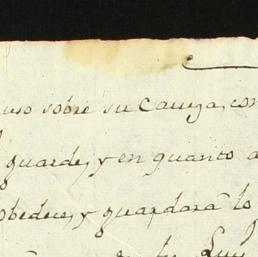 uso sobre su caveza, con
guarde, y en quanto a
obedece, y guardara lo